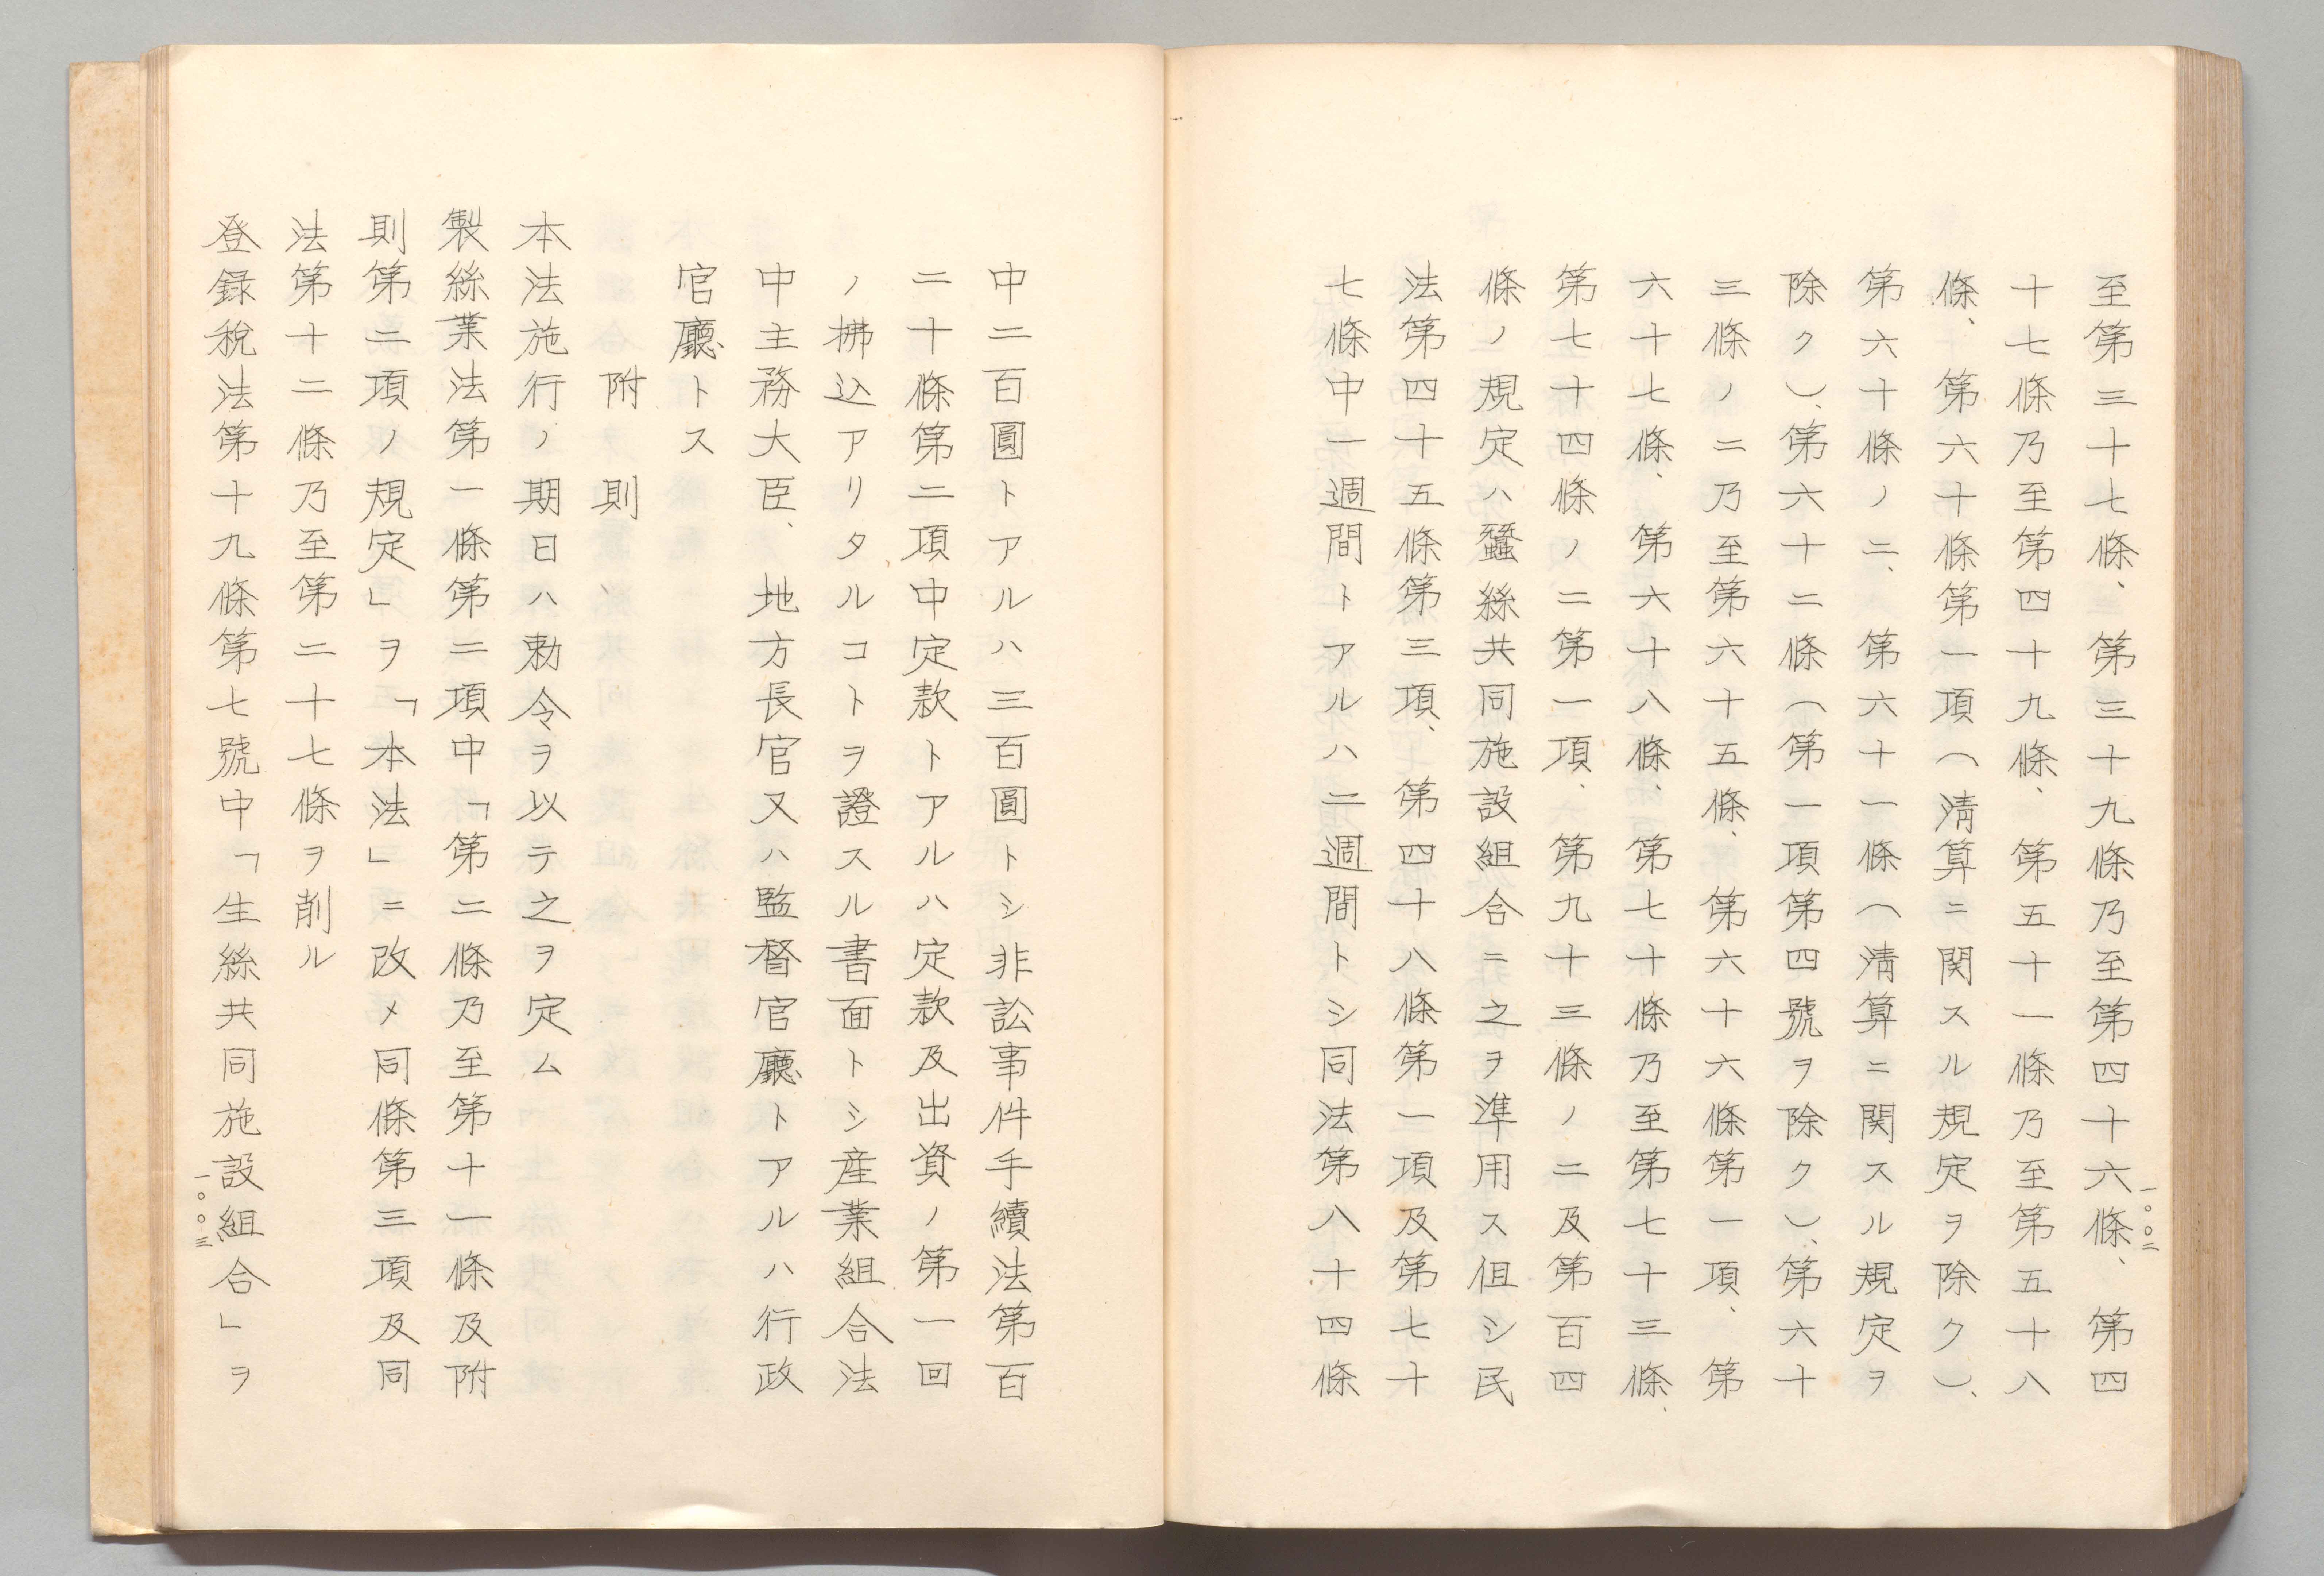 至第三十七條、第三十九條乃至第四十六條、第四
十七條乃至第四十九條、第五十一條乃至第五十八
條、第六十條第一項(淸算ニ関スル規定ヲ除ク)、
第六十條ノ二、第六十一條(淸算ニ関スル規定ヲ
除ク)、第六十二條(第一項第四號ヲ除ク)、第六十
三條ノ二乃至第六十五條、第六十六條第一項、第
六十七條、第六十八條、第七十條乃至第七十三條、
第七十四條ノ二第一項、第九十三條ノ二及第百四
條ノ規定ハ蠶絲共同施設組合ニ之ヲ準用ス但シ民
法第四十五條第三項、第四十八條第一項及第七十
七條中一週間トアルハ二週間トシ同法第八十四條
一〇〇二
中二百圓トアルハ三百圓トシ非訟事件手續法第百
二十條第二項中定款トアルハ定款及出資ノ第一回
ノ拂込アリタルコトヲ證スル書面トシ産業組合法
中主務大臣、地方長官又ハ監督官廳トアルハ行政
官廳トス
附則
本法施行ノ期日ハ勅令ヲ以テ之ヲ定ム
製絲業法第一條第二項中「第二條乃至第十一條及附
則第二項ノ規定」ヲ「本法」ニ改メ同條第三項及同
法第十二條乃至第二十七條ヲ削ル
登録税法第十九條第七號中「生絲共同施設組合」ヲ
一〇〇三